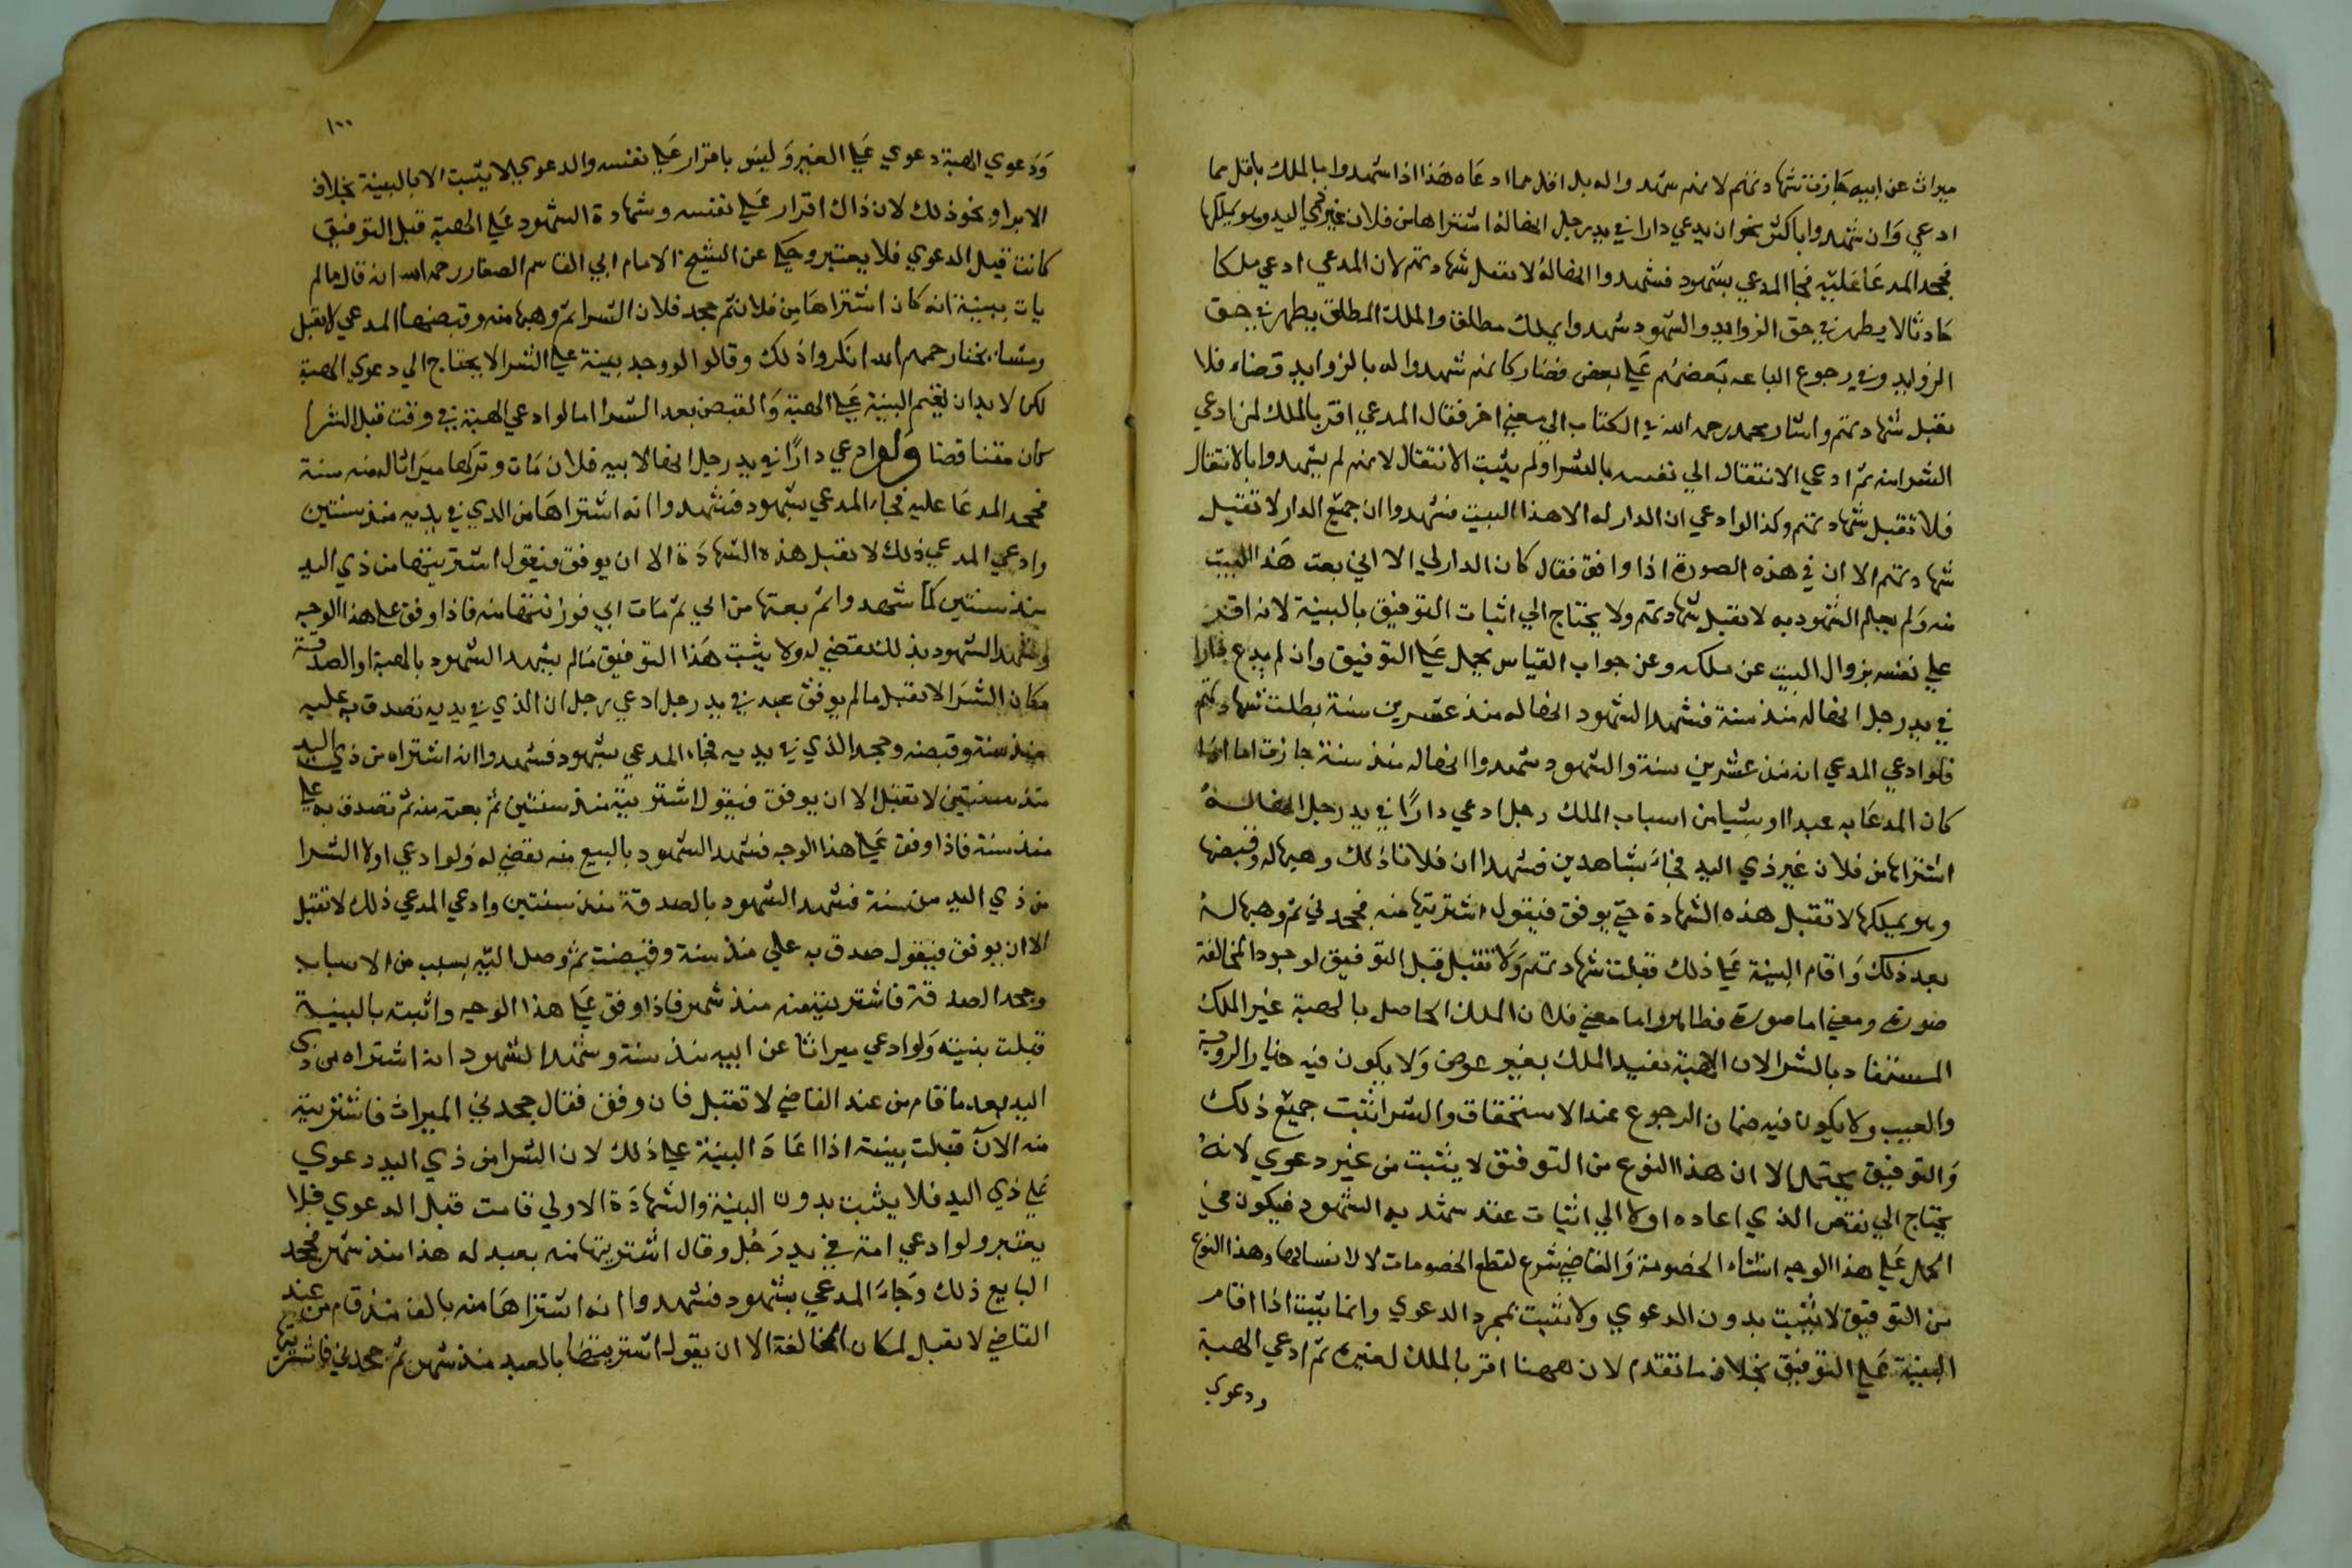 ميراث عن ابيه جازت شهادتهم لانهم شهدوا له بدل اقل مما ادعاه هذا اذا شهدوا بالملك باقل مما
ادعي وان شهدوا باكثر نحو ان يدعي دارا في يد رجل انها له اشتراها من فلان غير ذي اليد وهو يملكها
فجحد المدعا عليه فجا المدعي بشهود فشهدوا انها له لا تقبل شهادتهم لان المدعي ادعي ملكا
حادثا لا يظهر في حق الزوايد والشهود شهدوا بملك مطلق والملك المطلق يظهر في حق
الزوايد وفي رجوع الباعه بعضهم علي بعض فصار كانهم شهدوا له بالزوايد قضاء فلا
تقبل شهادتهم واشار محمد رحمه الله في الكتاب الي معني اخر فقال المدعي اقر بالملك لمن ادعي
الشرا منه ثم ادعي الانتقال الي نفسه بالشرا ولم يثبت الانتقال لانهم لم يشهدوا بالانتقال
فلا تقبل شهادتهم وكذا لو ادعي ان الدار له الا هذا البيت فشهدوا ان جميع الدار لا تقبل
شهادتهم الا ان في هذه الصورة اذا وافق فقال كان الدار لي الا اني بعت هذا البيت
منه ولم يعلم الشهود به لا تقبل شهادتهم ولا يحتاج الي اثبات التوفيق بالبينة لانه اقر
علي نفسه بزوال البيت عن ملكه وعن جواب القياس يحمل علي التوفيق وان لم يدع دارا
في يد رجل انها له منذ سنة فشهد الشهود انها له منذ عشرين سنة بطلت شهادتهم
فلو ادعي المدعي انه منذ عشرين سنة والشهود شهدوا انها له منذ سنة جازت اما اذا
كان المدعا به عبدا او شيا من اسباب الملك رجل ادعي دارًا في يد رجل انها له
اشتراها من فلان غير ذي اليد فجاء بشاهدين فشهدا ان فلانا ذلك وهبها له وقبضها
وهو يملكها لا تقبل هذه الشهادة حتي يوفق فيقول اشتريتها منه فجحدني ثم وهبها له
بعد ذلك واقام البينة علي ذلك قبلت شهادتهم ولا تقبل قبل التوفيق لوجود المخالفة
صورة ومعني اما صورة فظاهر واما معني فلان الملك الحاصل بالهبة غير الملك
المستفاد بالشرا لان الهبة تفيد الملك بغير عوض ولا يكون فيه خيار الروية
والعيب ولا يكون فيه ضمان الرجوع عند الاستحقاق والشرا تثبت جميع ذلك
والتوفيق يحتمل الا ان هذا النوع من التوفق لا يثبت من غير دعوي لانه
يحتاج الي نقض الذي اعاده اولا الي اثبات عقد شهد به الشهود فيكون في
الحمل علي هذا الوجه انشاء الخصومة والقاضي شرع لقطع الخصومات لا لانشائها وهذا النوع
من التوفيق لا يثبت بدون الدعوي ولا تثبت بمجرد الدعوي وانما يثبت اذا اقام
البينة علي التوفيق بخلاف ما تقدم لان ههنا اقر بالملك لغيره ثم ادعي الهبة
ودعوي
١٠٠
ودعوي الهبة دعوي علي الغير وليس باقرار علي نفسه والدعوي لا يثبت الا بالبينة بخلاف
الابرا ونحو ذلك لان ذاك اقرار علي نفسه وشهادة الشهود علي الهبة قبل التوفيق
كانت قبل الدعوي فلا يعتبر وحكي عن الشيخ الامام ابي القاسم الصفار رحمه الله انه قال ما لم
يات ببينة انه كان اشتراها من فلان ثم جحد فلان الشرا ثم وهبها منه وقبضها المدعي لا تقبل
ومشايخنا رحمهم الله انكروا ذلك وقالوا لو وجد بينة علي الشرا لا يحتاج الي دعوي الهبة
لكن لا بد ان يقيم البينة علي الهبة والقبض بعد الشرا اما لو ادعي الهبة في وقت قبل الشرا
كان متناقضا ولو ادعي دارًا في يد رجل انها لابيه فلان مات وتركها ميراثا له منه سنة
فجحد المدعا عليه فجاء المدعي بشهود فشهدوا انه اشتراها من الذي في يديه منذ سنتين
وادعي المدعي ذلك لا تقبل هذه الشهادة الا ان يوفق فيقول اشتريتها من ذي اليد
منذ سنتين كما شهدوا ثم بعتها من ابي ثم مات ابي فورثتها منه فاذا وفق علي هذا الوجه
وشهد الشهود بذلك تقضي له ولا يثبت هذا التوفيق مالم يشهد الشهود بالهبة او الصدقة
مكان الشرا لا تقبل ما لم يوفق عبد في يد رجل ادعي رجل ان الذي في يديه تصدق به عليه
منذ سنة وقبضه وجحد الذي في يديه فجاء المدعي بشهود فشهدوا انه اشتراه من ذي اليد
منذ سنتين لا تقبل الا ان يوفق فيقول اشتريته منذ سنتين ثم بعته منه ثم تصدق به علي
منذ سنة فاذا وفق علي هذا الوجه فشهد الشهود بالبيع منه تقضي له ولو ادعي اولا الشرا
من ذي اليد من سنة فشهد الشهود بالصدقة منذ سنتين وادعي المدعي ذلك لا تقبل
الا ان يوفق فيقول صدق به علي منذ سنة وقبضت ثم وصل اليه بسبب من الاسباب
وجحد الصدقة فاشتريته منه منذ شهر فاذا وفق علي هذا الوجه واثبت بالبينة
قبلت بنيته ولو ادعي ميراثا عن ابيه منذ سنة وشهد الشهود انه اشتراه من ذي
اليد بعد ما قام من عند القاضي لا تقبل فان وفق فقال جحدني الميراث فاشتريته
منه الآن قبلت بينته اذا اعاد البينة علي ذلك لان الشرا من ذي اليد دعوي
علي ذي اليد فلا يثبت بدون البينة والشهادة الاولي قامت قبل الدعوي فلا
يعتبر ولو ادعي امة في يد رجل وقال اشتريتها منه بعبد له هذا منذ شهر فجحد
البايع ذلك وجاء المدعي بشهود فشهدوا انه اشتراها منه بالف منذ قام من عند
القاضي لا تقبل لمكان المخالفة الا ان يقول اشتريتها بالعبد منذ شهر ثم جحدني فاشتريتها